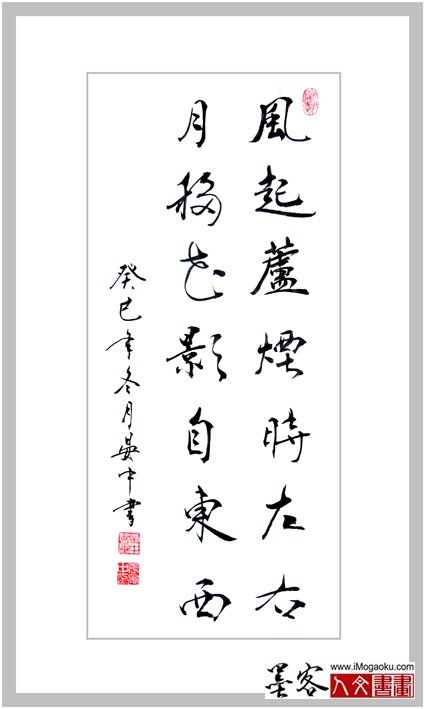 風起蘆煙時左右
月移花影自東西
癸巳年冬月晏中書
墨客
www.iMogaoku.com
人文書畫